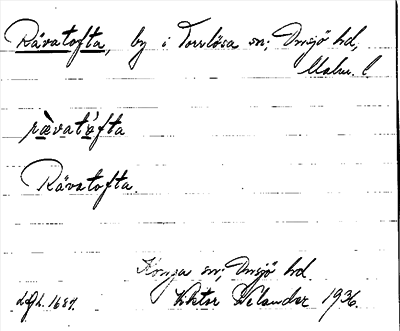 Rävatofta, by i Torrlösa sn; Onsjö hd,
Malm. l
rävatåfta
Rävatofta.
Konga sn; Onsjö hd
Viktor Welander 1936.